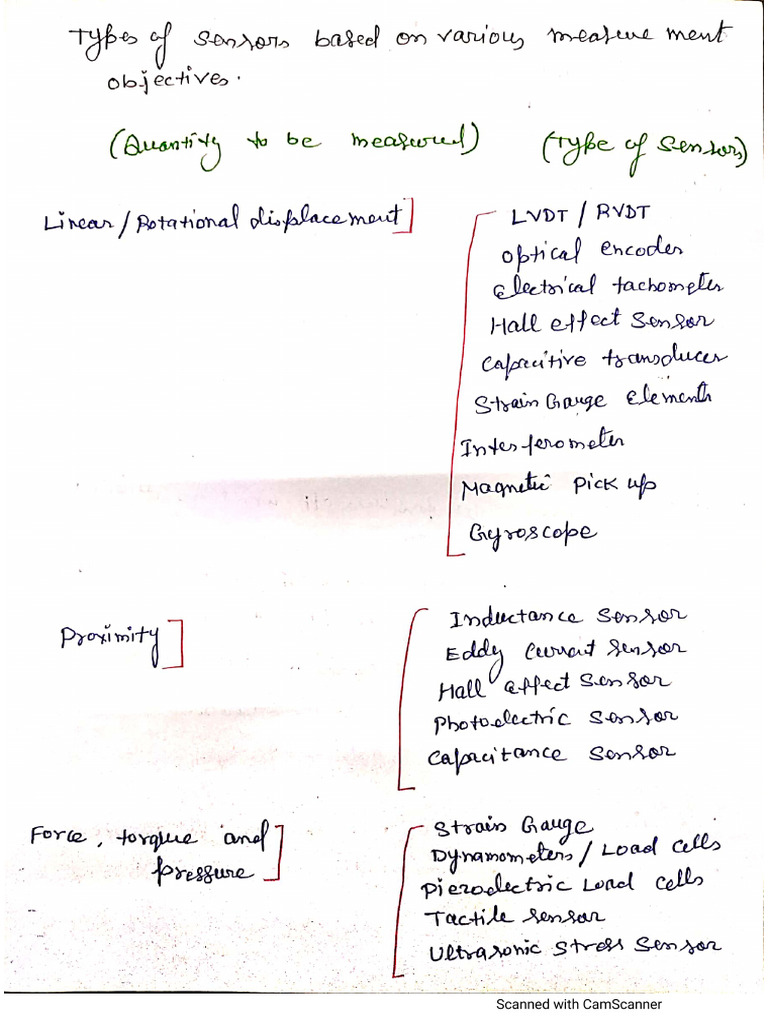 Types of sensors based on various measurement
objectives.
(Quantity to be measured) (Type of Sensor)
Linear/Rotational displacement]
LVDT / RVDT
Optical encoder
electrical tachometer
Hall effect Sensor
Capacitive transducer
Strain Gauge Elements
Interferometer
Magnetic Pick up
Gyroscope
Proximity]
Inductance Sensor
Eddy Current Sensor
Hall effect Sensor
Photoelectric Sensor
Capacitance Sensor
Force, torque and
pressure]
Strain Gauge
Dynamometers / Load Cells
Piezoelectric Load cells
Tactile sensor
Ultrasonic Stress Sensor
Scanned with CamScanner